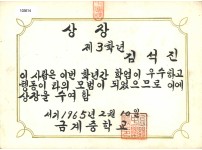 상장
제3학년
김석진
이 사람은 이번 학년간 학업이 우수하고
행동이 타의 모범이 되었으므로 이에
상장을 수여함
서기 1965년 2월 10일
금계중학교